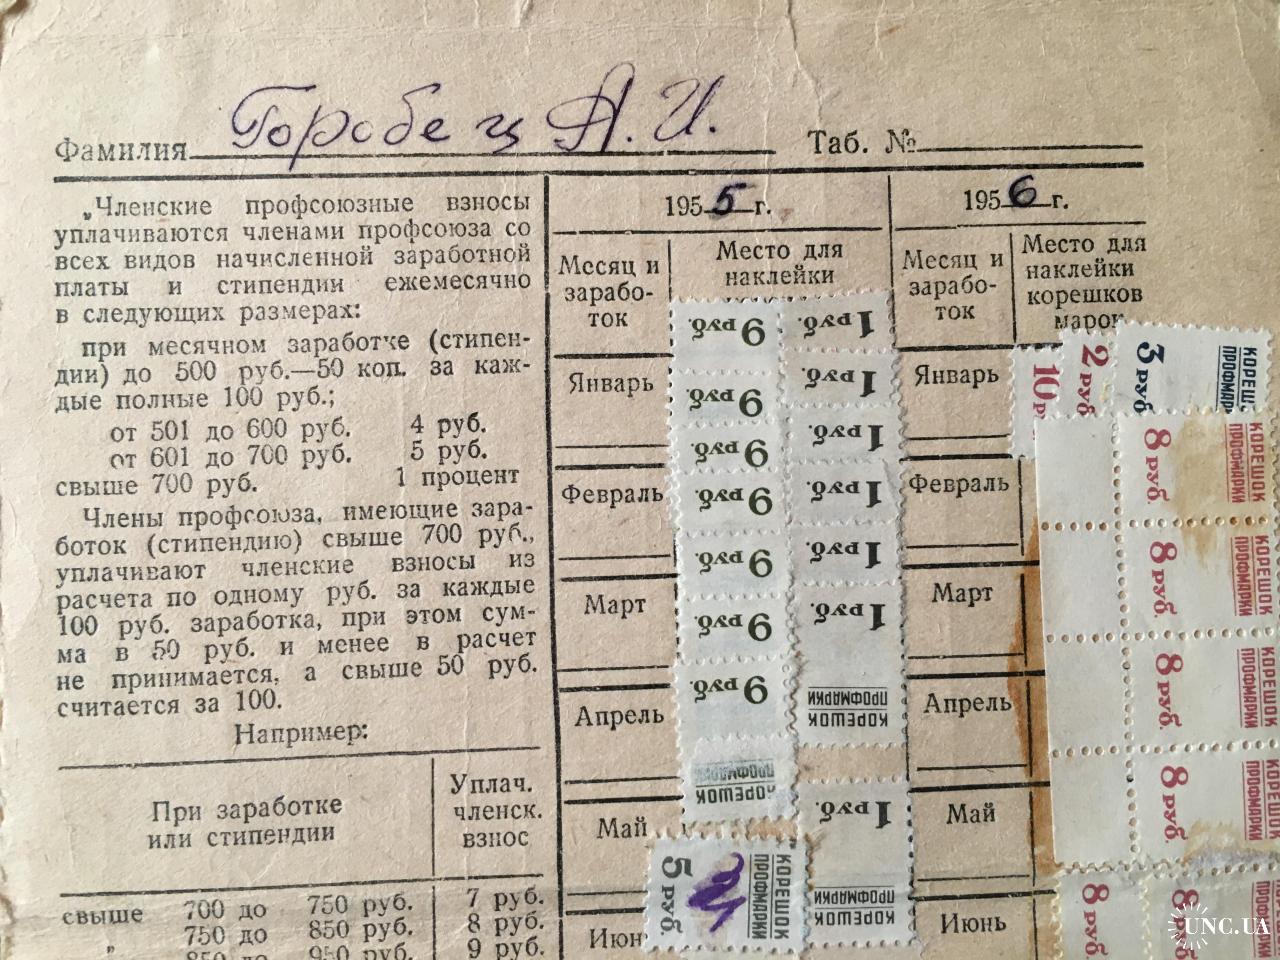 Фамилия Горобец А. И. Таб. №
„Членские профсоюзные взносы
уплачиваются членами профсоюза со
всех видов начисленной заработной
платы и стипендии ежемесячно
в следующих размерах:
при месячном заработке (стипен-
дии) до 500 руб.—50 коп. за каж-
дые полные 100 руб.;
от 501 до 600 руб. 4 руб.
от 601 до 700 руб. 5 руб.
свыше 700 руб. 1 процент
Члены профсоюза, имеющие зара-
боток (стипендию) свыше 700 руб.,
уплачивают членские взносы из
расчета по одному руб. за каждые
100 руб. заработка, при этом сум-
ма в 50 руб. и менее в расчет
не принимается, а свыше 50 руб.
считается за 100.
Например:
При заработке
или стипендии
Уплач.
членск.
взнос
свыше 700 до 750 руб. 7 руб.
„ 750 до 850 руб. 8 руб.
850 до 950 руб. 9 руб.
1955 г.
Месяц и
зарабо-
ток
Место для
наклейки
Январь
Февраль
Март
Апрель
Май
Июнь
9 руб.
9 руб.
9 руб.
9 руб.
9 руб.
9 руб.
9 руб.
КОРЕШОК
ПРОФМАРКИ
1 руб.
1 руб.
1 руб.
1 руб.
1 руб.
1 руб.
КОРЕШОК
ПРОФМАРКИ
1 руб.
КОРЕШОК
ПРОФМАРКИ
КОРЕШОК
ПРОФМАРКИ
5 руб.
1956 г.
Месяц и
зарабо-
ток
Место для
наклейки
корешков
марок
Январь
Февраль
Март
Апрель
Май
Июнь
10 р
2 руб
КОРЕШО
ПРОФМАРК
3 руб
КОРЕШОК
ПРОФМАРКИ
8 руб.
КОРЕШОК
ПРОФМАРКИ
8 руб.
КОРЕШОК
ПРОФМАРКИ
8 руб.
КОРЕШОК
ПРОФМАРКИ
8 руб.
8 руб.
8 руб.
UNC.UA